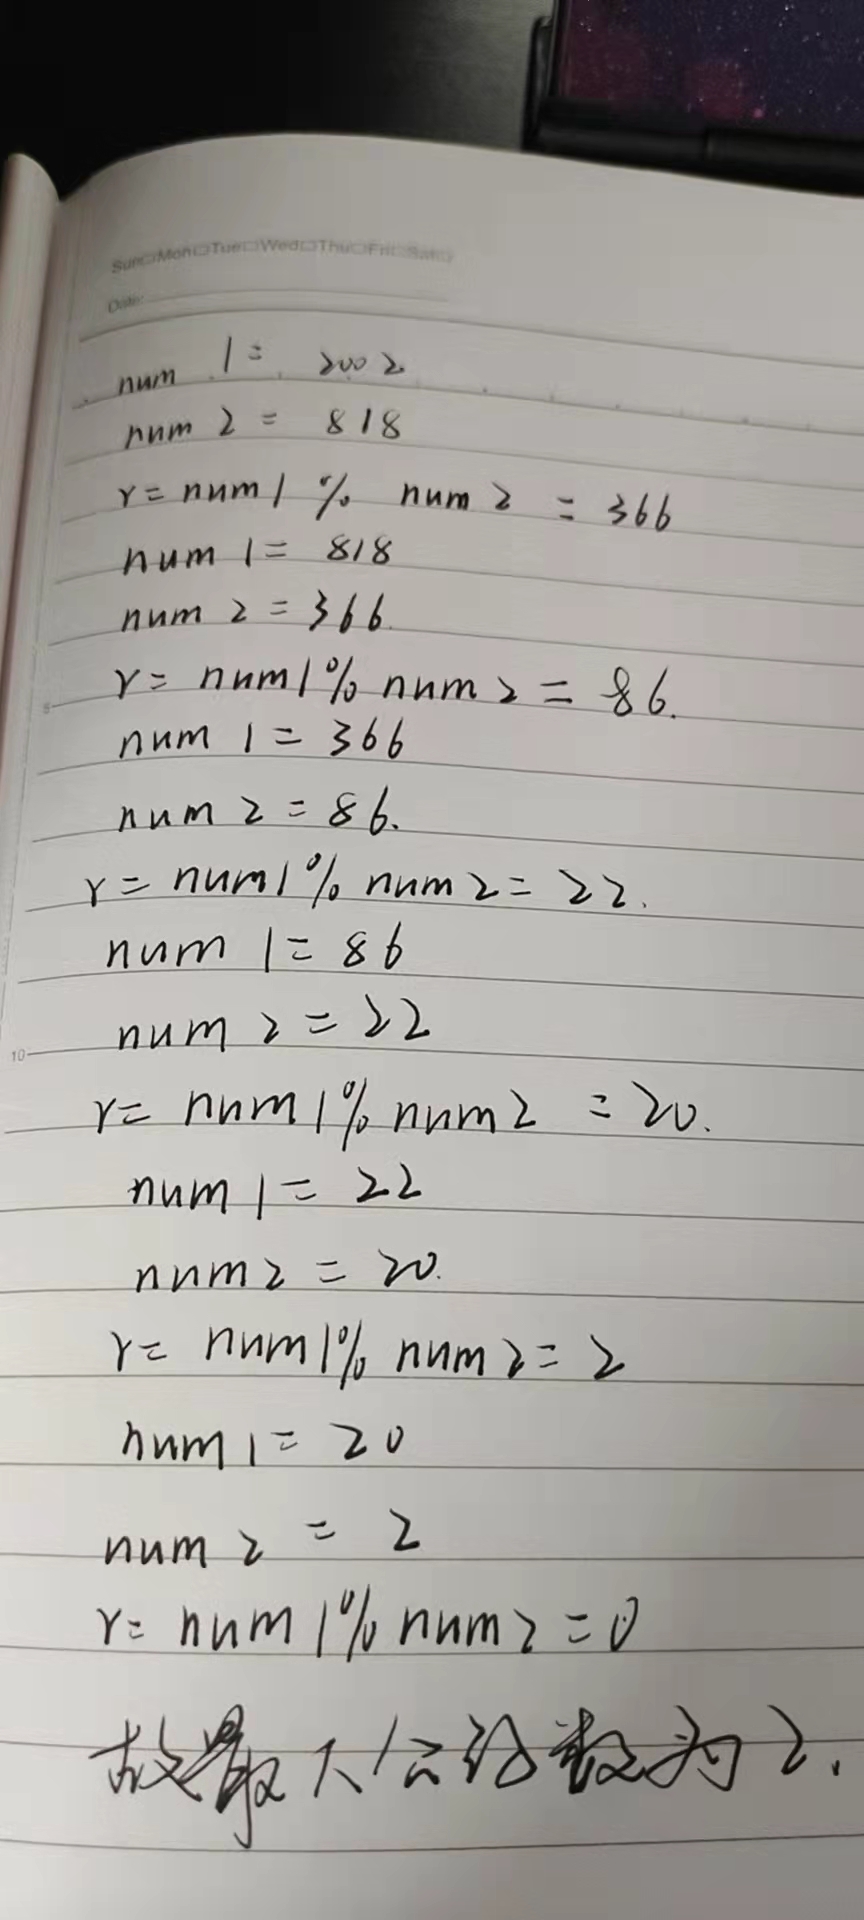 Sun□Mon□Tue□Wed□Thu□Fri□Sat□
Date:
num 1 = 2002
num 2 = 818
r = num 1 % num 2 = 366
num 1 = 818
num 2 = 366.
r = num 1 % num 2 = 86.
5
num 1 = 366
num 2 = 86.
r = num 1 % num 2 = 22.
num 1 = 86
num 2 = 22
10
r = num 1 % num 2 = 20.
num 1 = 22
num 2 = 20.
r = num 1 % num 2 = 2
num 1 = 20
num 2 = 2
r = num 1 % num 2 = 0
故最大公约数为2.